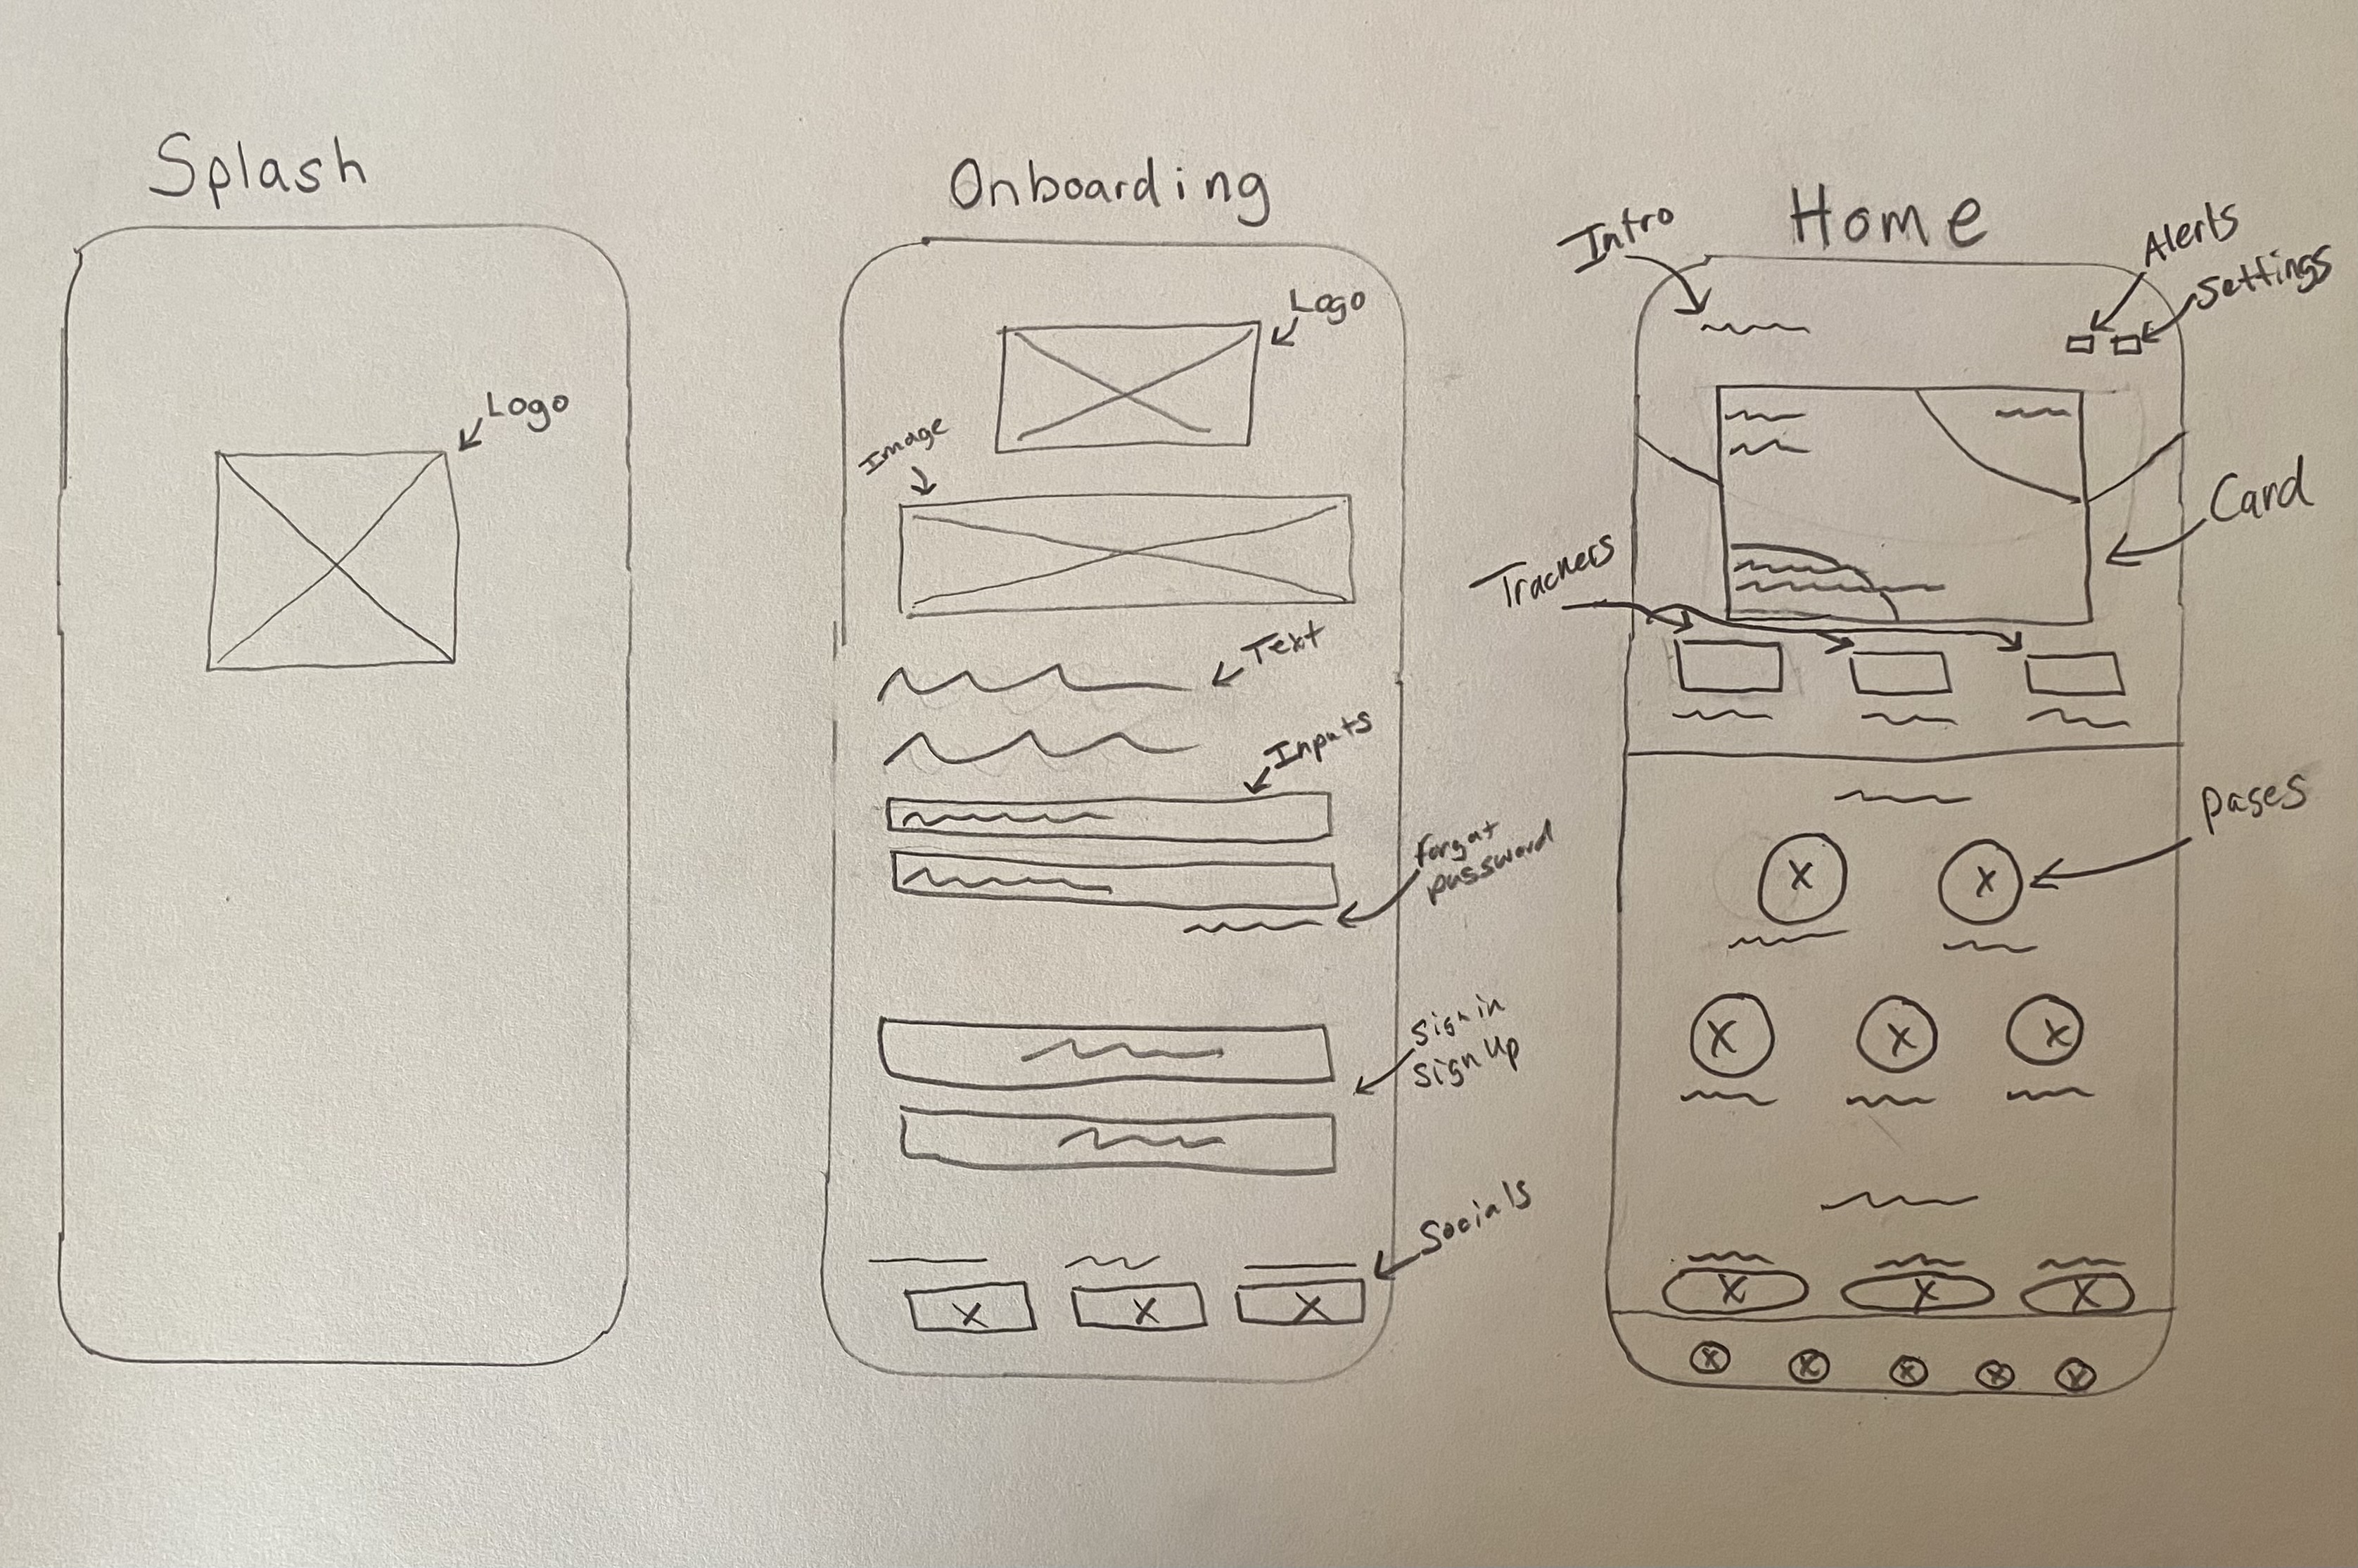 Splash
Logo
Onboarding
Logo
Image
Text
Inputs
forgot
password
Sign in
Sign Up
Socials
Home
Intro
Alerts
Settings
Card
Trackers
Pages